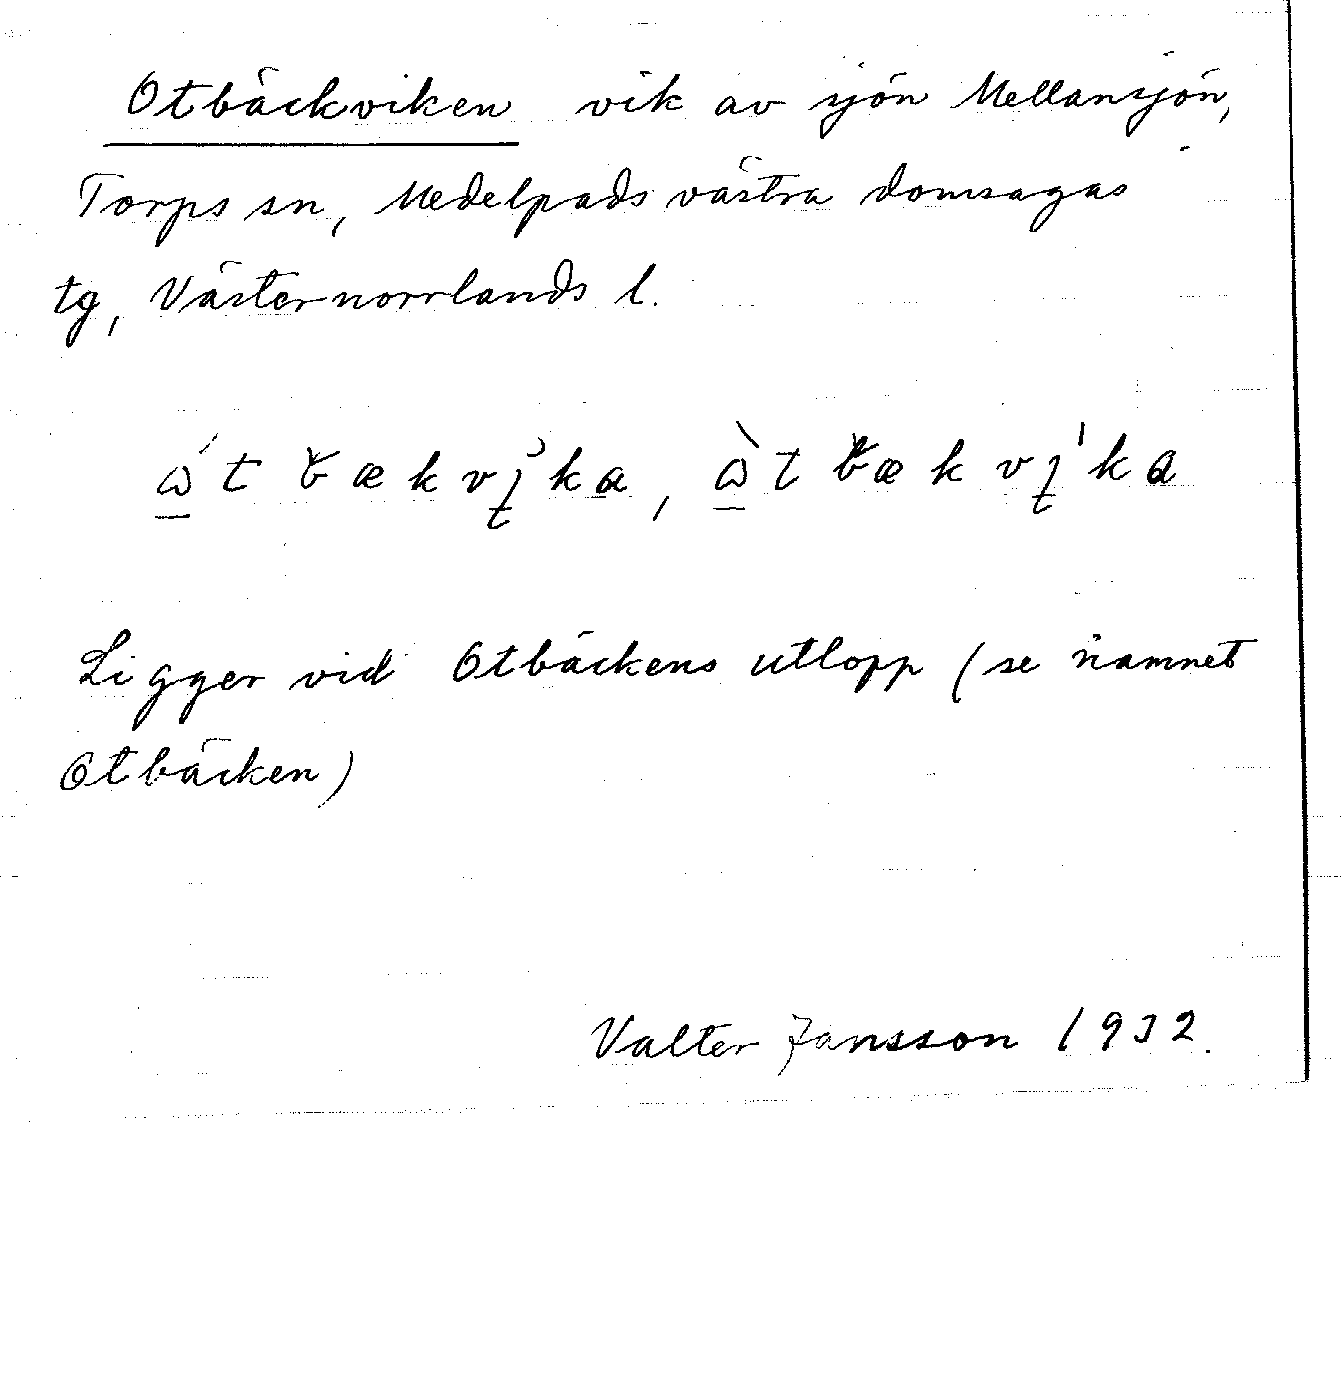 Otbäckviken vik av sjön Mellansjön,
Torps sn, Medelpads västra domsagas
tg, Västernorrlands l.
Ligger vid Otbäckens utlopp (se namnet
Otbäcken)
Valter Jansson 1932.